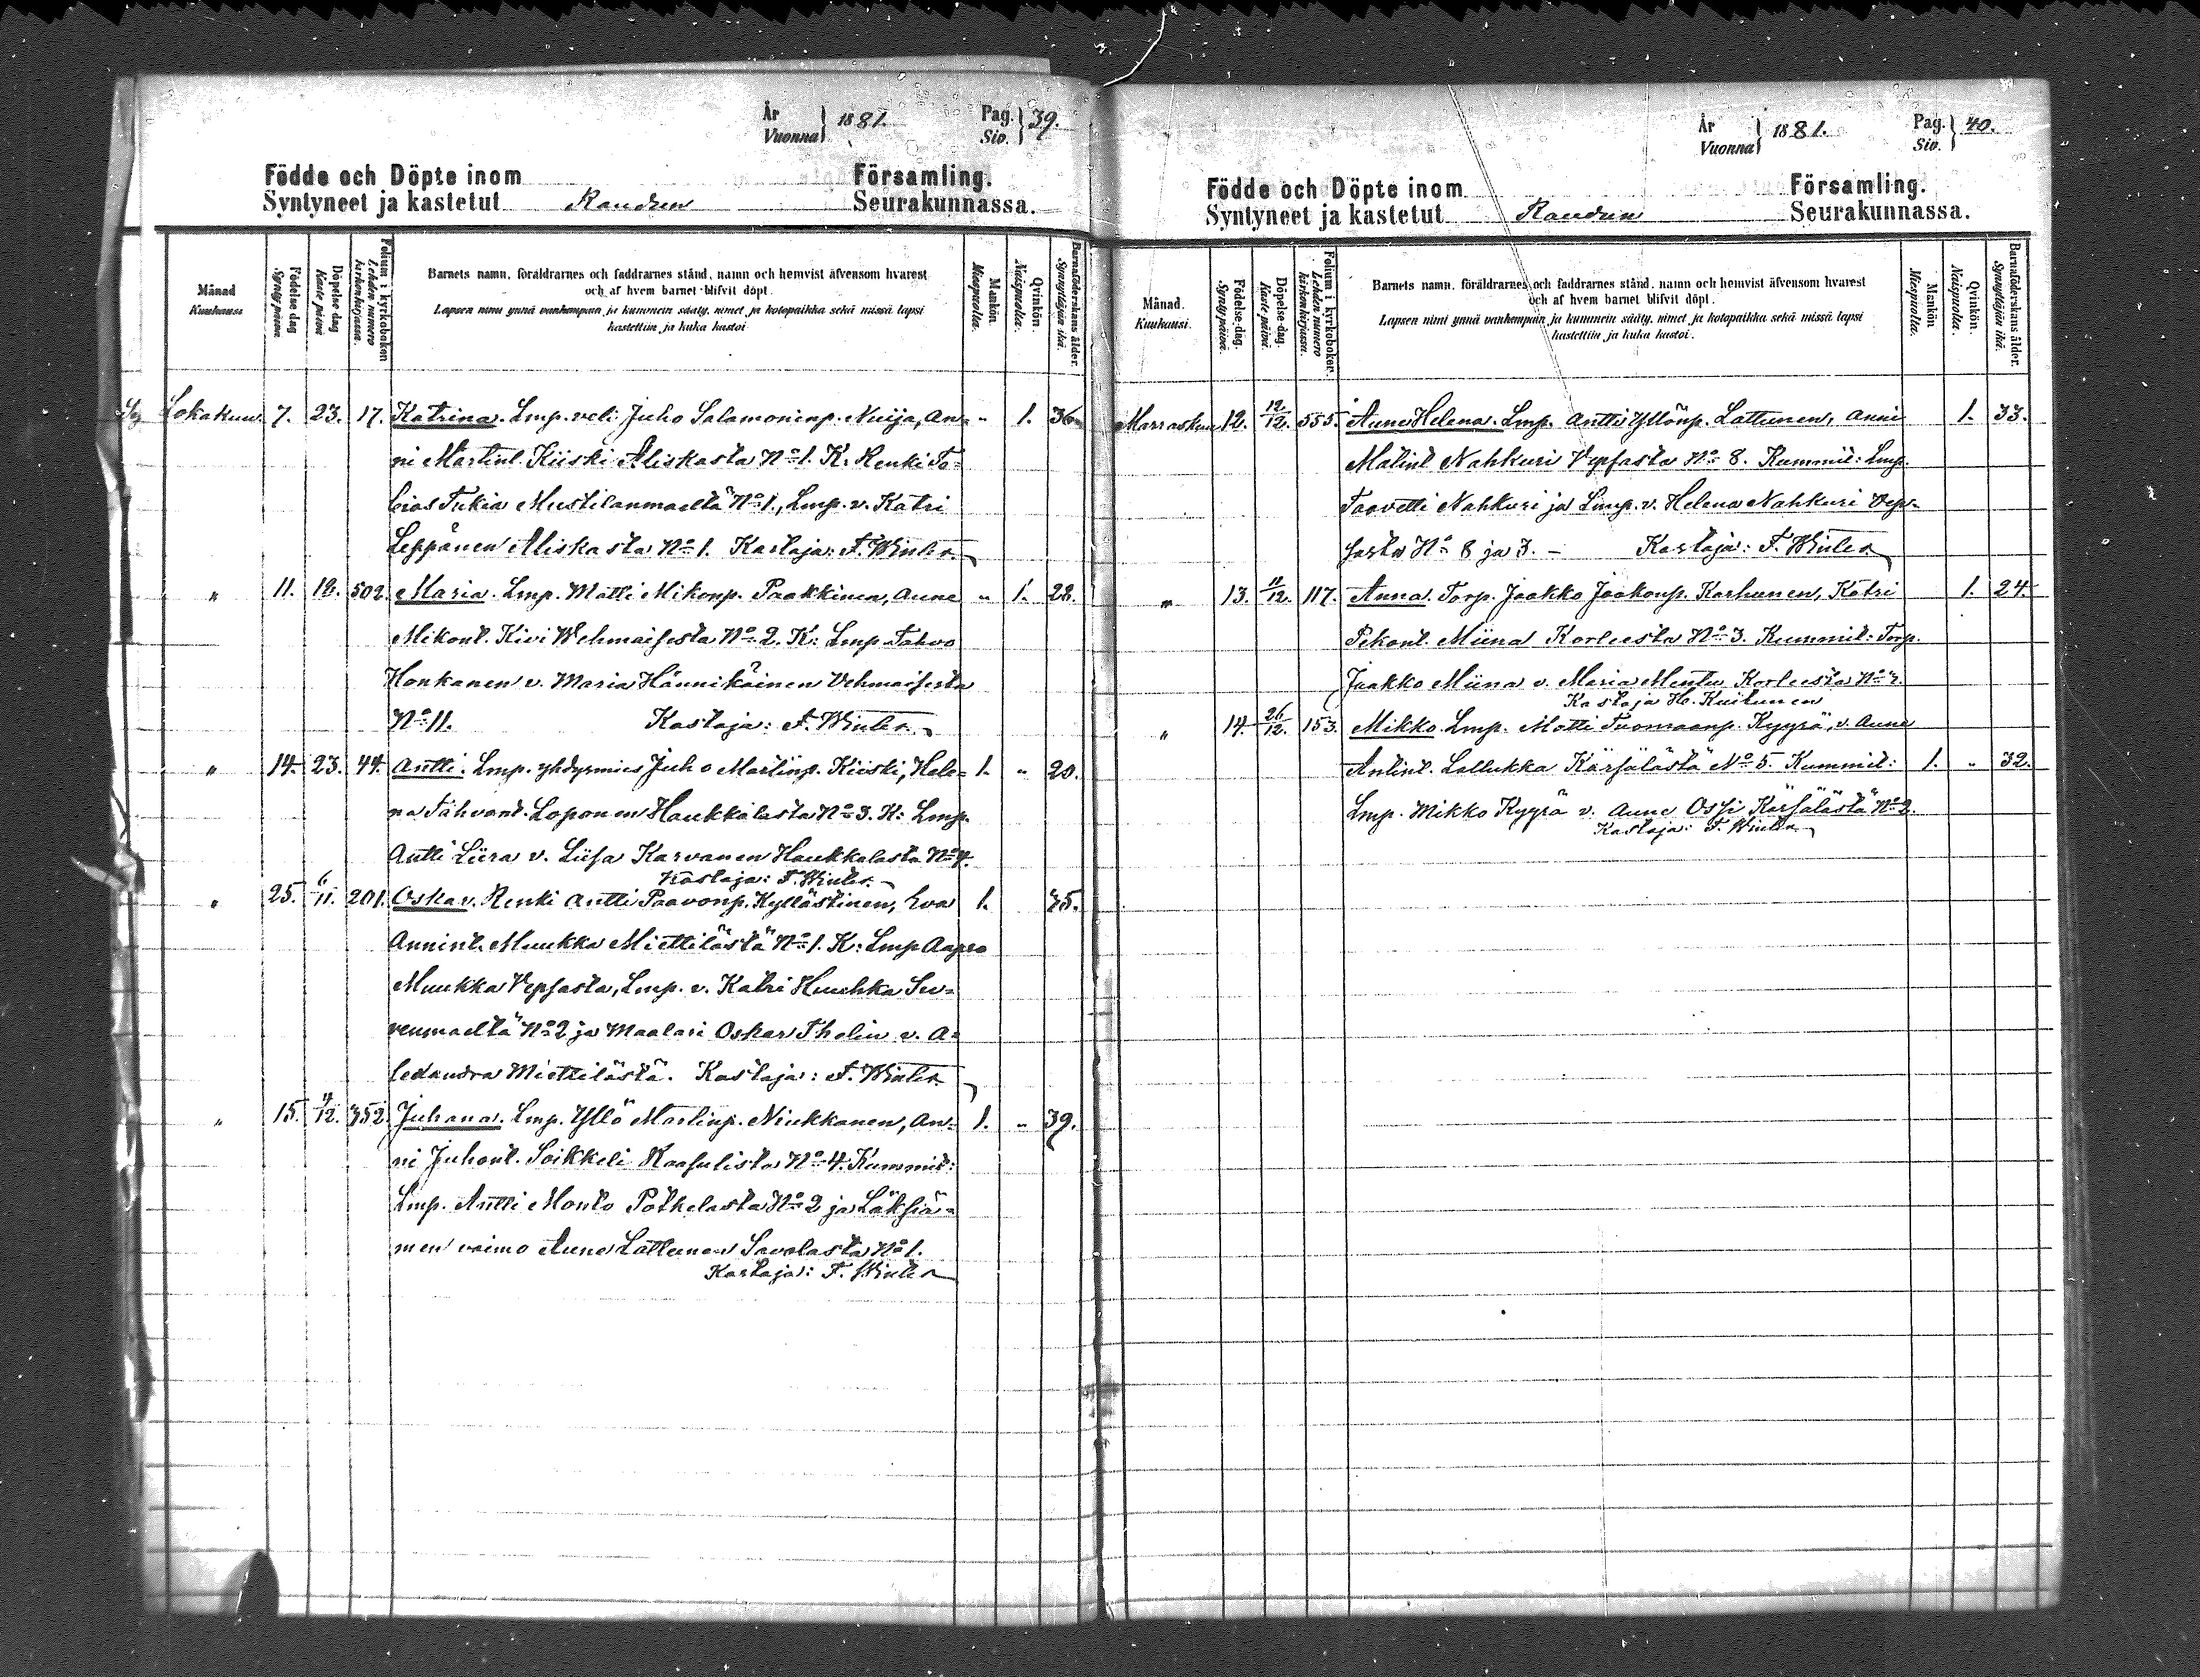 År
Vuonna 1881.
Pag.
Siv. 39.
Födde och Döpte inom Församling.
Syntyneet ja kastetut Raudun Seurakunnassa.
Månad
Kuukausi
Födelse dag
Syntypäivä
Döpelse dag
Kaste päivä
Folium i kyrkoboken
Lehden numero kirkonkirjassa.
Barnets namn, föräldrarnes och faddrarnes stånd, namn och hemvist äfvensom hvarest
och af hvem barnet blifvit döpt.
Lapsen nimi ynnä vanhempain ja kummein sääty, nimet ja kotopaikka sekä missä lapsi
kastettiin ja kuka kastoi
Mankön.
Miespuolta.
Qvinkön.
Naispuolta.
Barnaföderskans ålder.
Synnyttäjän ikä.
Lokakuu. 7. 23. 17. Katrina. Lmp. veli Juho Salamoninp. Nuija, An= " 1. 36.
ni Martint. Kiiski Aliskasta No 1. K. Renki To=
bias Tukia Mustilanmaeltä No 1., Lmp. v. Katri
Leppänen Aliskasta No 1. Kastaja: F. Winter
" 11. 16. 502. Maria. Lmp. Matti Mikonp. Paakkinen, Anne " 1. 28.
Mikont. Kivi Wehmaisesta No 2. K: Lmp Tahvo
Honkanen v. Maria Hännikäinen Vehmaisesta
No 11. Kastaja: F. Winter.
" 14. 23. 44. Antti. Lmp. yhdysmies Juho Martinp. Kiiski, Hele= 1. " 20.
na Tahvont. Loponen Haukkalasta No 3. K: Lmp.
Antti Liira v. Liisa Karvanen Haukkalasta No 4.
Kastaja: F. Winter.
" 25. 6/11. 201. Oskar. Renki Antti Paavonp. Kyllästinen, Eva 1. 35.
Annint. Muukka Miettilästä No 1. K: Lmp Aapro
Muukka Vepsasta, Lmp. v. Katri Huuhka Su=
venmaeltä No 2 ja Maalari Oskar Tholin v. A=
lexandra Miettilästä. Kastaja: F. Winter
" 15. 12. 352. Juhana. Lmp. Yllö Martinp. Niukkanen, An= 1. " 39.
ni Juhont. Soikkeli Raasulista No 4. Kummit:
Lmp. Antti Monto Potkelasta No 2 ja Läksiä=
men vaimo Anna Lattunen Savolasta No 1.
Kastaja: F. Winter
År
Vuonna 1881.
Pag.
Siv. 40.
Födde och Döpte inom Församling.
Syntyneet ja kastetut Raudun Seurakunnassa.
Månad.
Kuukausi.
Födelse-dag.
Syntypäivä.
Döpelse-dag.
Kaste päivä.
Folium i kyrkoboken.
Lehden numero kirkonkirjassa.
Barnets namn, föräldrarnes och faddrarnes stånd, namn och hemvist äfvensom hvarest
och af hvem barnet blifvit döpt.
Lapsen nimi ynnä vanhempain ja kummein sääty, nimet ja kotopaikka sekä missä lapsi
kastettiin ja kuka kastoi.
Mankön
Miespuolta.
Qvinkön.
Naispuolta.
Barnaföderskans ålder.
Synnyttäjän ikä.
Marraskuu 12. 12/12. 555. Anna Helena. Lmp. Antti Yllönp. Lattunen, Anni 1. 33.
Matint Nahkuri Vepsasta No 8. Kummit: Lmp.
Taavetti Nahkuri ja Lmp. v. Helena Nahkuri Vep=
sasta No 8 ja 3. – Kastaja: F. Winter
" 13. 11/12. 117. Anna. Torp. Jaakko Jaakonp. Karhunen, Katri 1. 24.
Pekont. Miina Korleesta No 3. Kummit: Torp.
Jaakko Miina v. Maria Mentu Korleesta No 3.
Kastaja H. Kuitunen
" 14. 26/12. 153. Mikko Lmp. Matti Tuomaanp. Kyyrä, v. Anna
Antint. Lallukka Kärsälästä No 5. Kummit: 1. " 32.
Lmp. Mikko Kyyrä v. Anne Ossi Kärsälästä No 2.
Kastaja: F. Winter